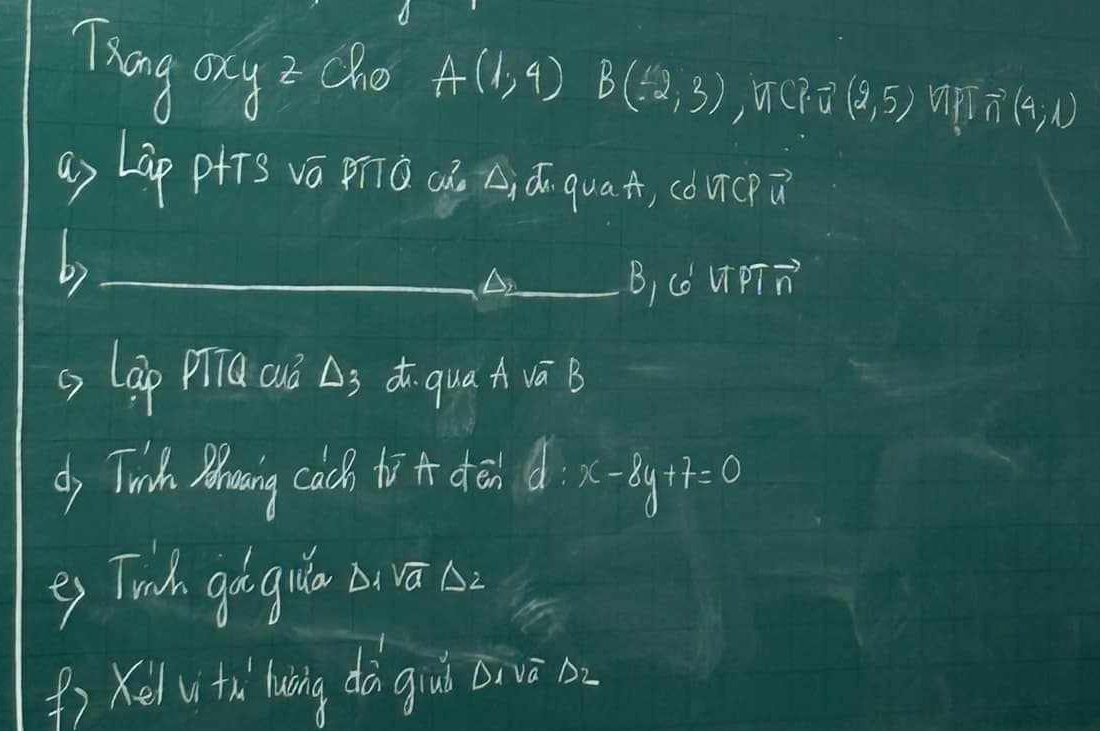 Trong oxy z cho A(1;4) B(-2;3), VTCP \vec{u} (2,5) VTPT \vec{n} (4;1)
a) Lập PTTS và PTTQ của Δ₁ đi qua A, có VTCP \vec{u}
b) ———— Δ₂ ——— B, có VTPT \vec{n}
c) Lập PTTQ của Δ3 đi qua A và B
d) Tính khoảng cách từ A đến d: x-8y+7=0
e) Tính góc giữa Δ1 và Δ2
f) Xét vị trí tương đối giữa Δ1 và Δ2